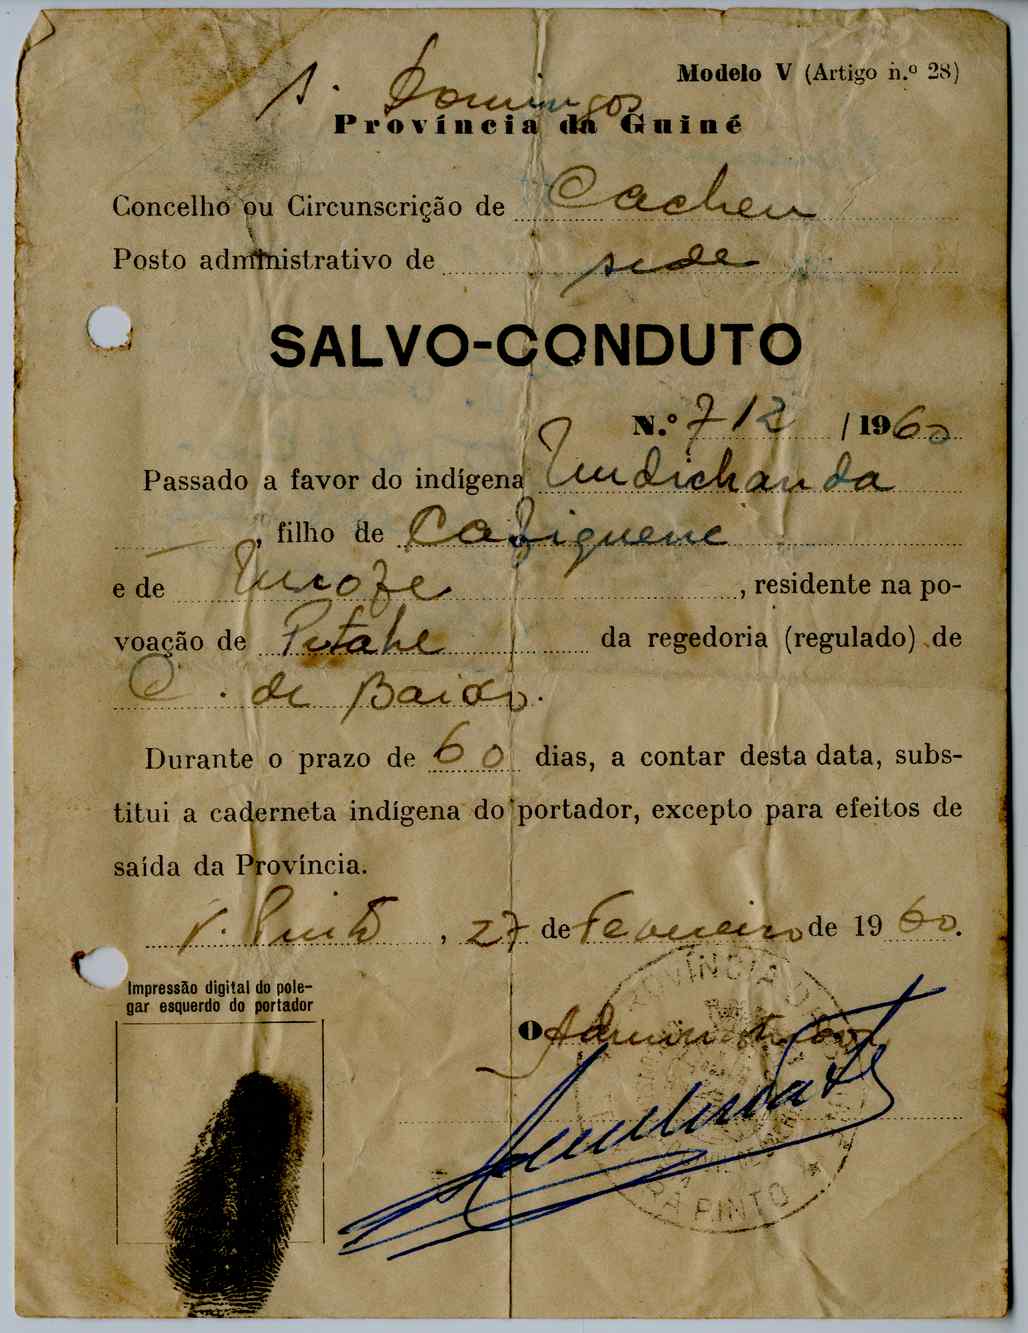 Modelo V (Artigo n.º 28)
S. Domingos
Província da Guiné
Concelho ou Circunscrição de Cacheu
Posto administrativo de sede
SALVO-CONDUTO
N.º 712 / 1960
Passado a favor do indígena Undichanda
, filho de Caziguene
e de Uncoze, residente na po-
voação de Putahe da regedoria (regulado) de
C. de Baixo.
Durante o prazo de 60 dias, a contar desta data, subs-
titui a caderneta indígena do portador, excepto para efeitos de
saída da Província.
T. Pinto, 27 de Fevereiro de 1960.
Impressão digital do pole-
gar esquerdo do portador
O Administrador